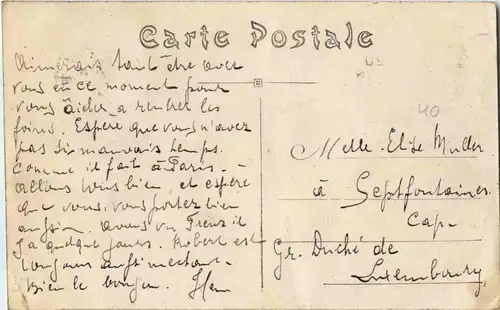 Carte Postale
Aimerais tant être avec
vous en ce moment pour
vous aider a rentrer les
foins. Espère que vous n'avez
pas si mauvais temps.
Comme il fait à Paris. -
allons tous bien, et espère
que vous, vous portez bien
aussi. avons vu Frenz il
y a quelque jours. Robert est
toujours aussi mechant.
Bien le bonjour.
40
Melle. Elise Muller
à Septfontaines
Cap-
Gr. Duché de
Luxembourg,